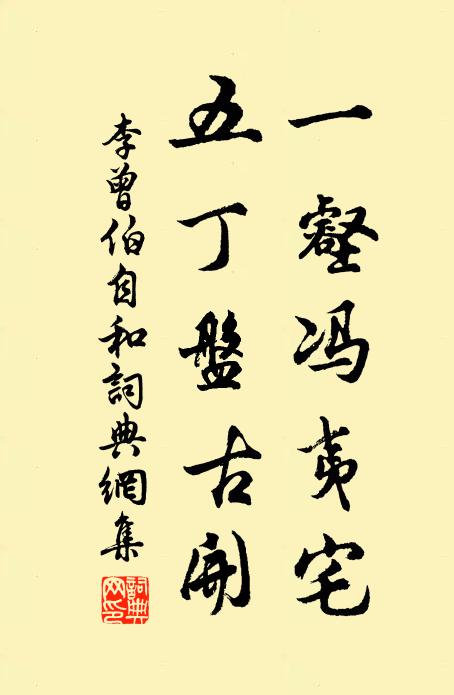 一壑冯夷宅
五丁盤古開
李曾伯自和詞典網集
詞典網印